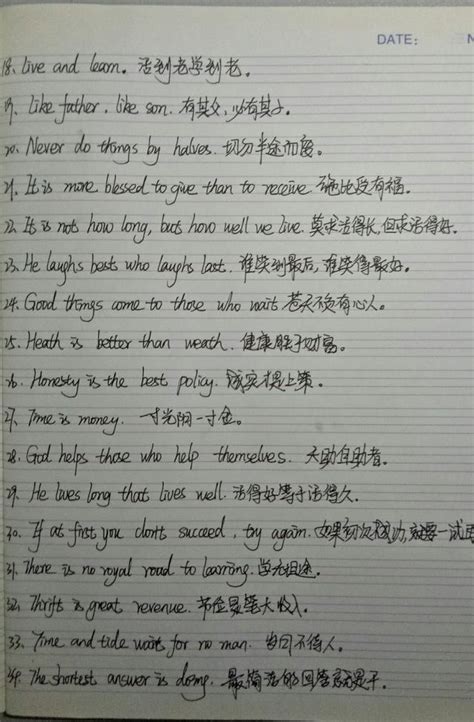 DATE:
N
18. Live and learn. 活到老学到老。
19. Like father, like son. 有其父,必有其子。
20. Never do things by halves. 切勿半途而废。
21. It is more blessed to give than to receive. 施比受有福。
22. It is not how long, but how well we live. 莫求活得长,但求活得好。
23. He laughs bests who laughs last. 谁笑到最后,谁笑得最好。
24. Good things come to those who wait 苍天不负有心人。
25. Heath is better than weath. 健康胜于财富。
26. Honesty is the best policy. 诚实才是上策。
27. Time is money. 一寸光阴一寸金。
28. God helps those who help themselves. 天助自助者。
29. He lives long that lives well. 活得好等于活得久。
30. If at first you don't succeed, try again. 如果初次不成功,就要一试再
31. There is no royal road to learning. 学无坦途。
32. Thrift is great revenue. 节俭是笔大收入。
33. Time and tide wait for no man. 岁月不待人。
34. The shortest answer is doing. 最简洁的回答就是干。